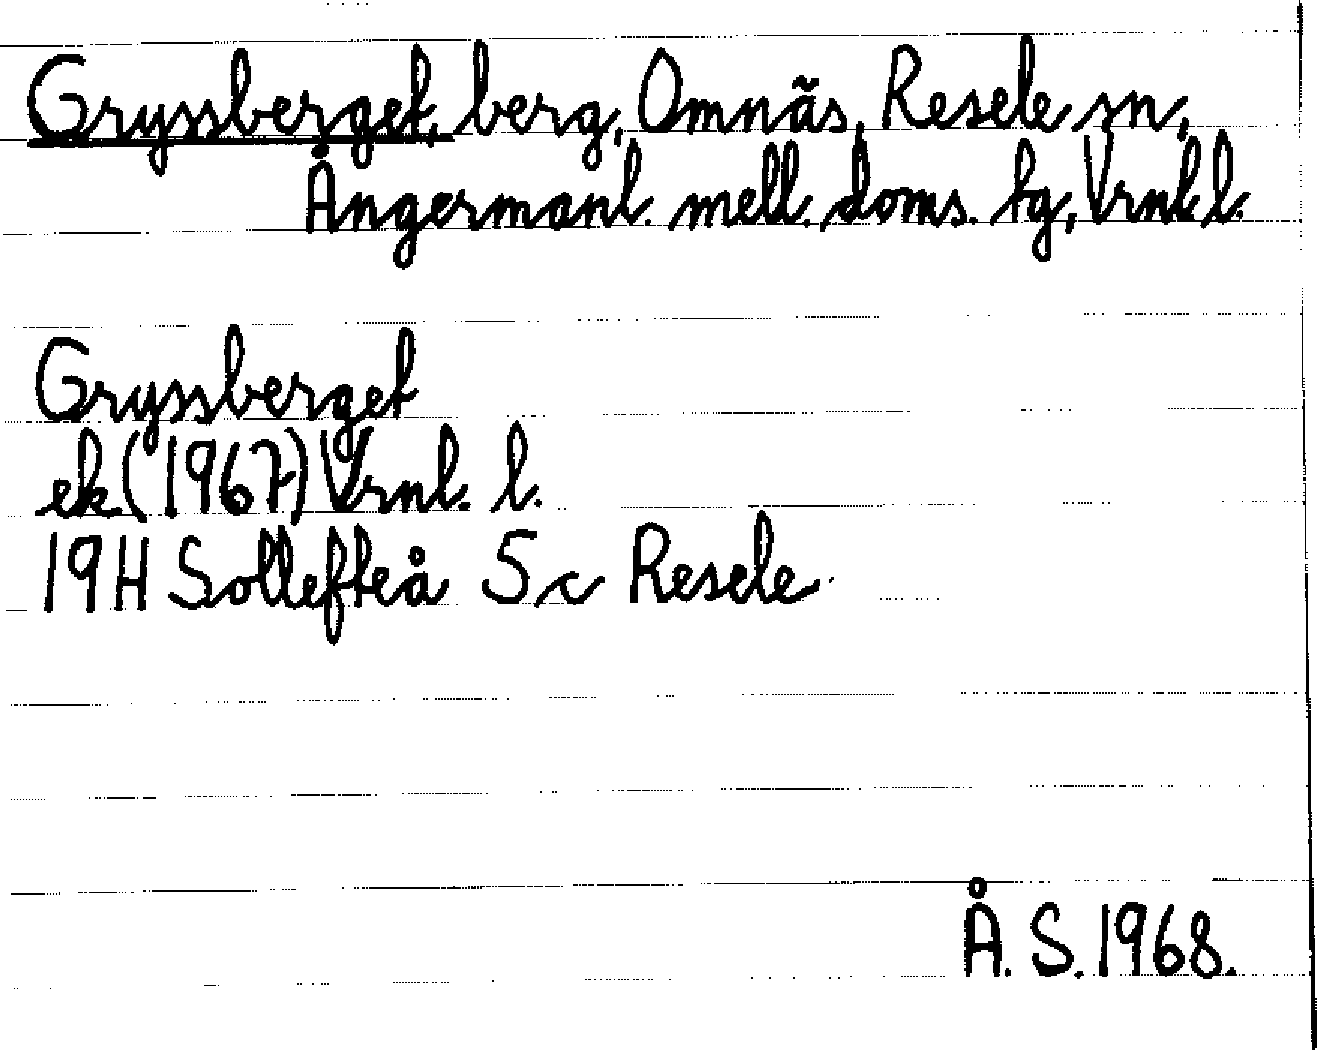 Gryssberget, berg, Omnäs, Resele sn,
Ångermanl. mell. doms. tg, Vrnl. l.
Gryssberget
ek (1967) Vrnl. l.
19H Sollefteå 5c Resele
Å. S. 1968.